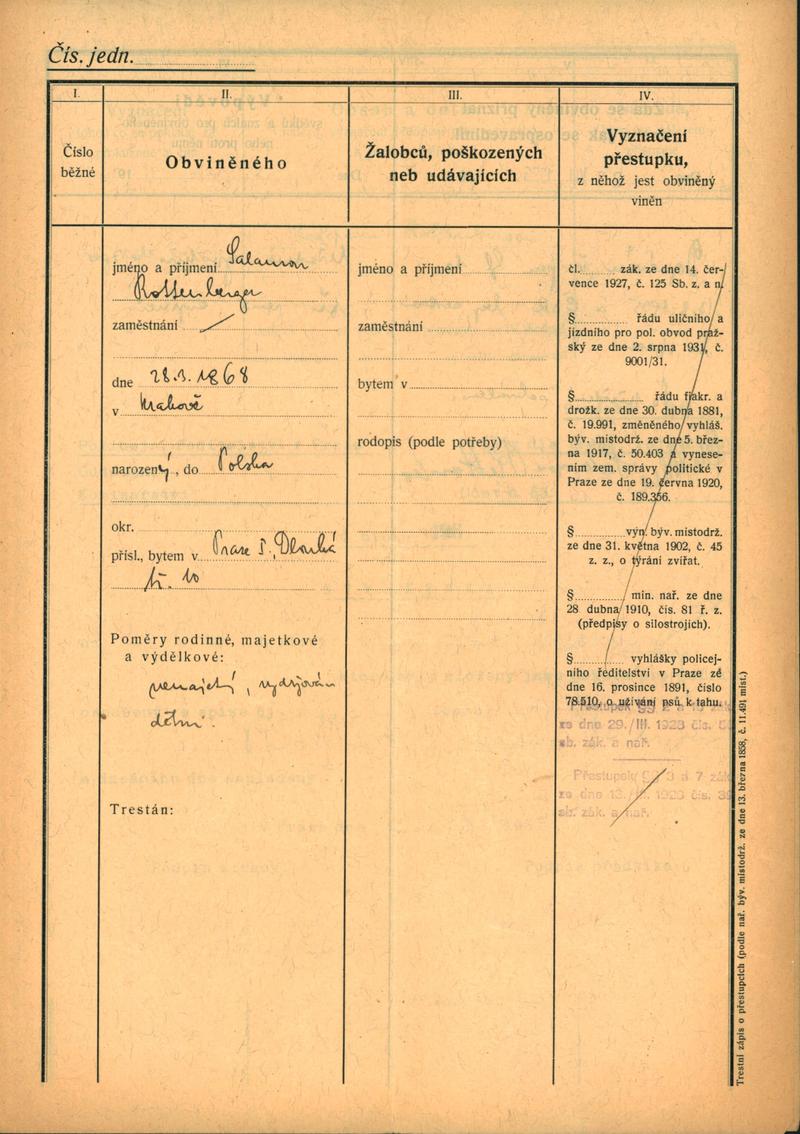 Čís. jedn.
I.
II.
III.
IV.
Číslo
běžné
Obviněného
Žalobců, poškozených
neb udávajících
Vyznačení
přestupku,
z něhož jest obviněný
viněn
jméno a příjmení Salamon
Rottenberger
zaměstnání
dne 28.3.1868
v Krakově
narozený, do Polska
okr.
přísl., bytem v Praze I., Dlouhá
tř. 10
Poměry rodinné, majetkové
a výdělkové:
nemajetný, vydržován
dětmi.
Trestán:
jméno a příjmení
zaměstnání
bytem v
rodopis (podle potřeby)
čl. zák. ze dne 14. čer-
vence 1927, č. 125 Sb. z. a n.
§ řádu uličního a
jízdního pro pol. obvod praž-
ský ze dne 2. srpna 1931, č.
9001/31.
§ řádu fiakr. a
drožk. ze dne 30. dubna 1881,
č. 19.991, změněného vyhláš.
býv. místodrž. ze dne 5. břez-
na 1917, č. 50.403 a vynese-
ním zem. správy politické v
Praze ze dne 19. června 1920,
č. 189.356.
§ výn. býv. místodrž.
ze dne 31. května 1902, č. 45
z. z., o týrání zvířat.
§ min. nař. ze dne
28 dubna 1910, čís. 81 ř. z.
(předpisy o silostrojích).
§ vyhlášky policej-
ního ředitelství v Praze ze
dne 16. prosince 1891, číslo
78.510, o užívání psů k tahu.
Přestupek
ze dne 29./III. 1923 čís.
sb. zák. a nař.
Přestupek a 7 zák
ze dne 1928 čís.
sb. zák. a nař.
Trestní zápis o přestupcích (podle nař. býv. místodrž. ze dne 13. března 1858, č. 11.491 míst.)